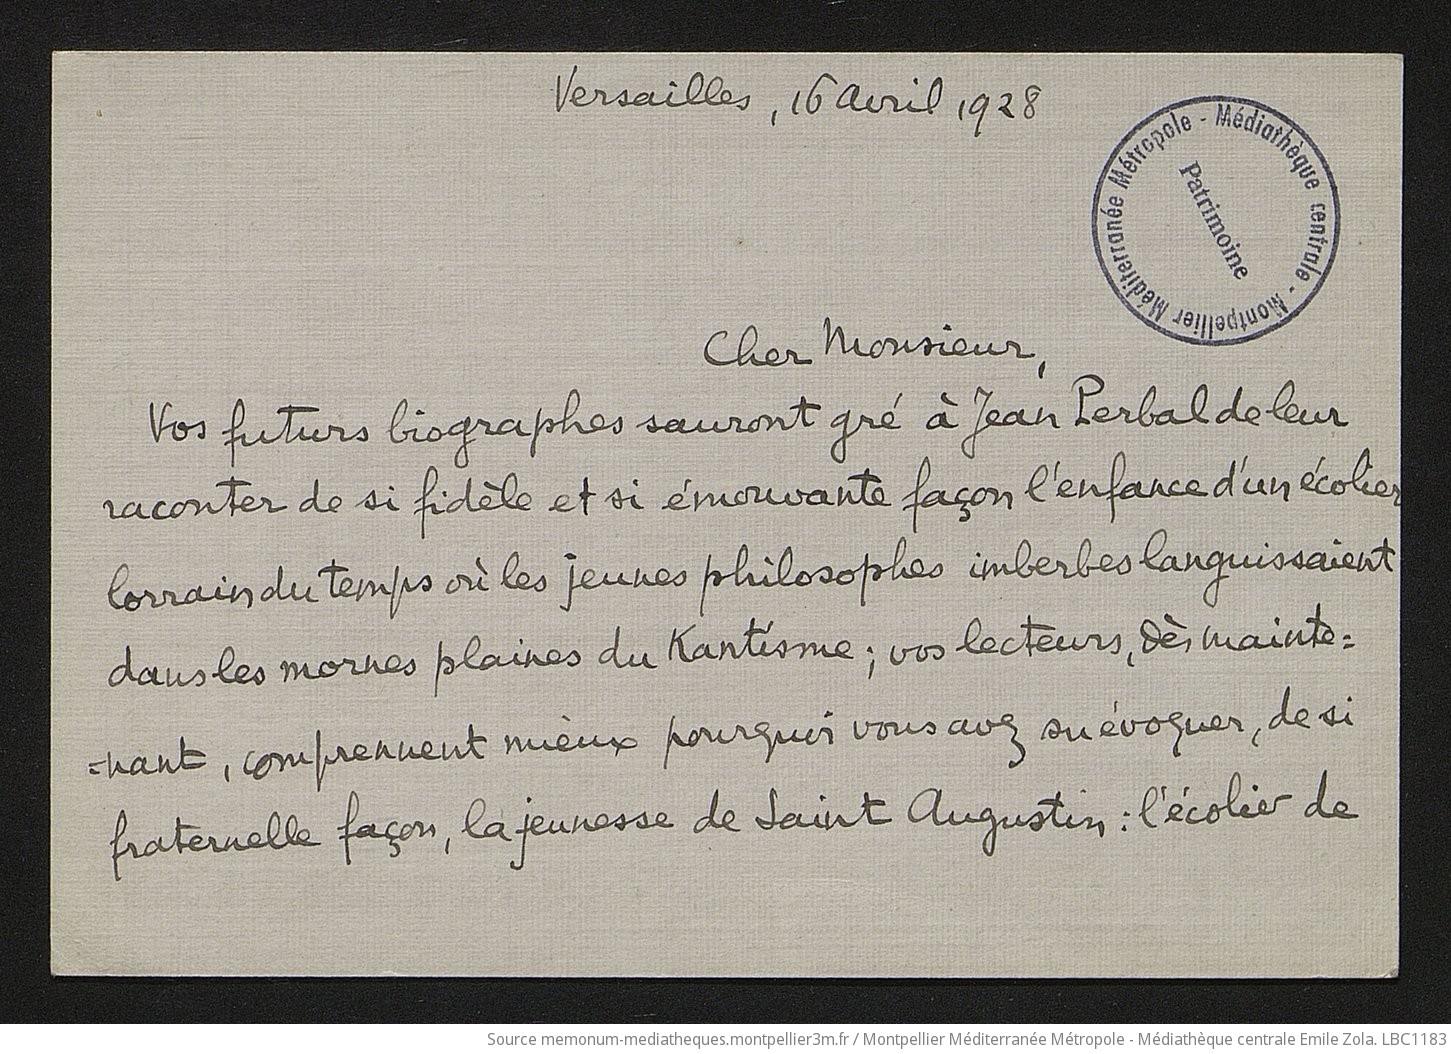 Versailles, 16 avril, 1928
Médiathèque centrale - Montpellier Méditerranée Métropole -
Patrimoine
Cher Monsieur,
Vos futurs biographes sauront gré à Jean Perbal de leur
raconter de si fidèle et si émouvante façon l'enfance d'un écolier
lorrain du temps où les jeunes philosophes imberbes languissaient
dans les mornes plaines du Kantisme ; vos lecteurs, dès mainte=
=nant, comprennent mieux pourquoi vous avez su évoquer, de si
fraternelle façon, la jeunesse de Saint Augustin : l'écolier de
Source memonum-mediatheques.montpellier3m.fr / Montpellier Méditerranée Métropole - Médiathèque centrale Emile Zola. LBC1183